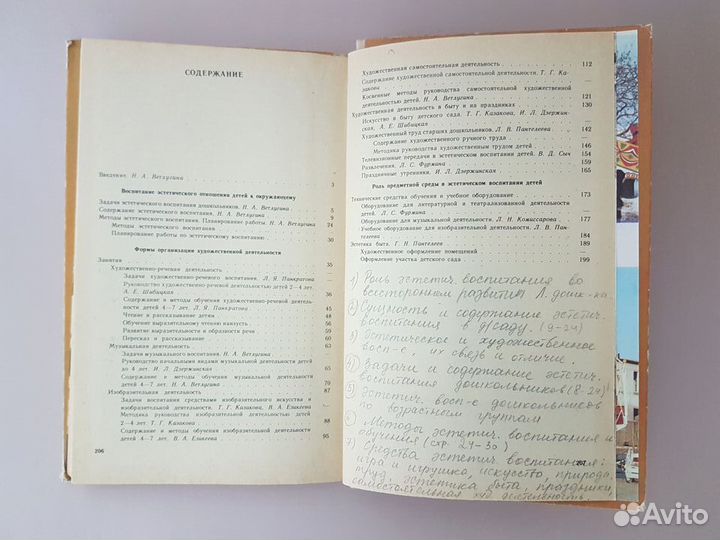 СОДЕРЖАНИЕ
Введение. Н. А. Ветлугина 3
Воспитание эстетического отношения детей к окружающему
Задачи эстетического воспитания дошкольников. Н. А. Ветлугина 5
Содержание эстетического воспитания. Н. А. Ветлугина 9
Методы эстетического воспитания. Планирование работы. Н. А. Ветлугина 24
Методы эстетического воспитания —
Планирование работы по эстетическому воспитанию 30
Формы организации художественной деятельности
Занятия —
Художественно-речевая деятельность —
Задачи художественно-речевого воспитания. Л. Я. Панкратова 34
Руководство художественно-речевой деятельностью детей 2—4 лет.
А. Е. Шибицкая
Содержание и методы обучения художественно-речевой деятельности
детей 4—7 лет. Л. Я. Панкратова 45
Чтение и рассказывание детям 48
Обучение выразительному чтению наизусть 56
Развитие выразительности и образности речи 59
Пересказ и рассказывание 60
Музыкальная деятельность 63
Задачи музыкального воспитания. Н. А. Ветлугина —
Руководство начальными видами музыкальной деятельности детей
до 4 лет. И. Л. Дзержинская
Содержание и методы обучения музыкальной деятельности детей
4—7 лет. Н. А. Ветлугина 70
Изобразительная деятельность 87
Задачи воспитания средствами изобразительного искусства и изобразительной
деятельности. Т. Г. Казакова, В. А. Езикеева —
Методика руководства изобразительной деятельностью детей
2—4 лет. Т. Г. Казакова 88
Содержание и методы обучения изобразительной деятельности
детей 4—7 лет. В. А. Езикеева 95
206
Художественная самостоятельная деятельность 112
Содержание художественной самостоятельной деятельности. Т. Г. Ка-
закова —
Косвенные методы руководства самостоятельной художественной
деятельностью детей. Н. А. Ветлугина 121
Художественная деятельность в быту и на праздниках 130
Искусство в быту детского сада. Т. Г. Казакова, И. Л. Дзержин-
ская, А. Е. Шибицкая —
Художественный труд старших дошкольников. Л. В. Пантелеева 142
Содержание художественного ручного труда —
Методика руководства художественным трудом детей 146
Телевизионные передачи в эстетическом воспитании детей. В. Д. Сыч 154
Развлечения. Л. С. Фурмина 158
Праздничные утренники. И. Л. Дзержинская 165
Роль предметной среды в эстетическом воспитании детей
Технические средства обучения и учебное оборудование 173
Оборудование для литературной и театрализованной деятельности
детей. Л. С. Фурмина —
Оборудование для музыкальной деятельности. Л. Н. Комиссарова 177
Учебное оборудование для изобразительной деятельности. Л. В. Пан-
телеева 184
Эстетика быта. Г. Н. Пантелеев 189
Художественное оформление помещений —
Оформление участка детского сада 199
1) Роль эстетич. воспитания во
всестороннем развитии л. дошк-ка.
2) Сущность и содержание эстетич.
воспитания в д/саду. (9-24)
3) Эстетическое и художественное
восп-е, их связь и отличие.
4) Задачи и содержание эстетич.
воспитания дошкольников (8-24)
5) Эстетич. восп-е дошкольников
возрастном группам
6) Методы эстетич. воспитания и
обучения (стр. 24-30)
7) Средства эстетич. воспитания:
игра и игрушка, искусство, природа,
труд, эстетика быта, праздники,
самостоятельная худ. деятельность.
Avito